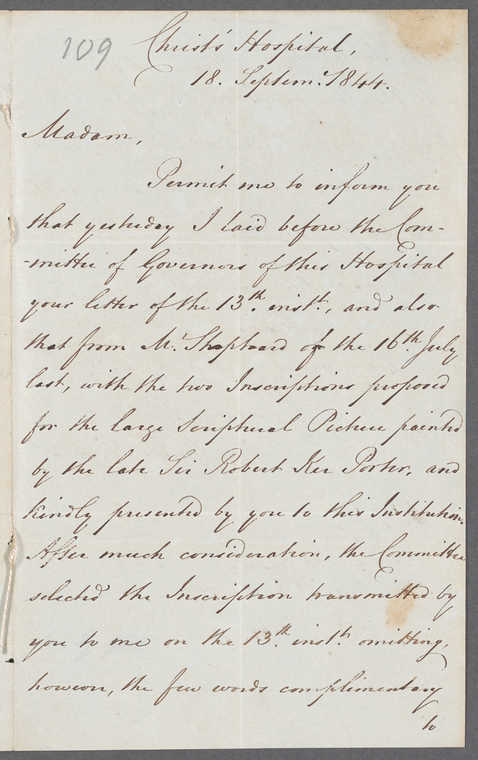 109
Christ's Hospital,
18. Septemr. 1844.
Madam,
Permit me to inform you
that yesterday I laid before the Com-
-mittee of Governors of this Hospital
your letter of the 13th. inst., and also
that from Mr. Shepheard of the 16th. July
last, with the two Inscriptions proposed
for the large Scriptural Picture painted
by the late Sir Robert Ker Porter, and
kindly presented by you to this Institution.
After much consideration, the Committee
selected the Inscription transmitted by
you to me on the 13th. inst. omitting,
however, the few words complimentary
to